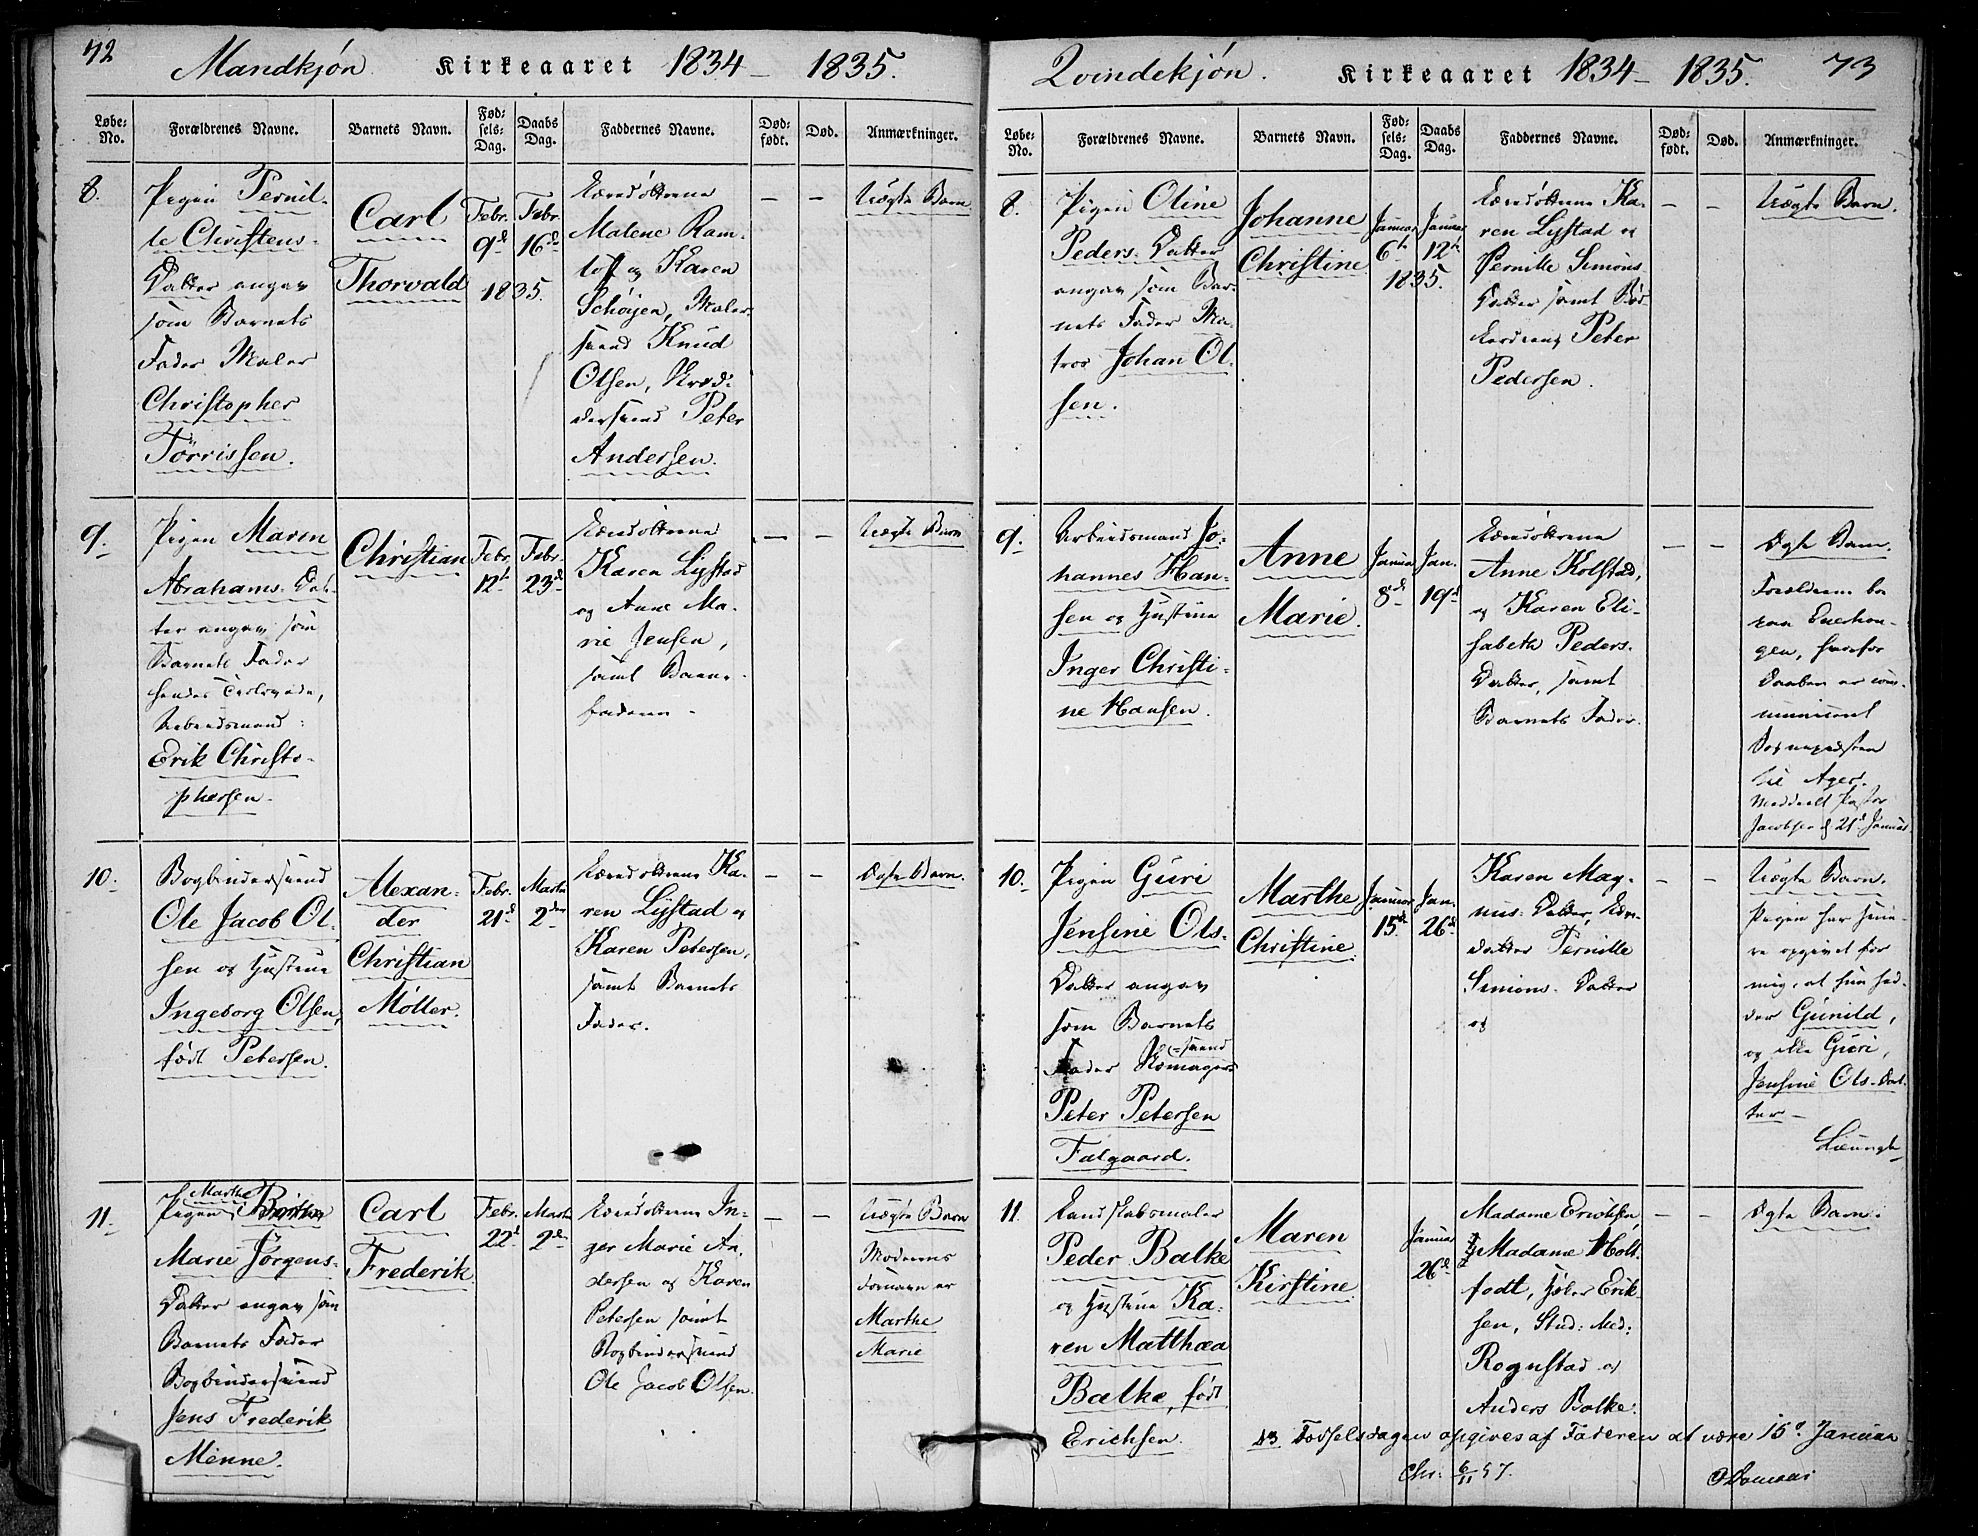 72
Mandkjøn. Kirkeaaret 1834 – 1835.
Løbe-No. Forældrenes Navne. Barnets Navn. Fødsels-Dag. Daabs Dag. Faddernes Navne. Dødfødt. Død. Anmærkninger.
8.
Pigen Pernil-
le Christens-
Datter angav
som Barnets
Fader Maler
Christopher
Törrissen.
Carl
Thorvald
Febr. 9d
Febr. 16d
1835.
Malene Ram-
loff og Karen
Schøyen, Maler
svend Knud
Olsen,
svend Peter
Andersen.
– –
Uægte Barn
9.
Pigen Maren
Abrahams-Dat-
ter angav som
Barnets Fader
hendes
Arbeidsmand
Erik Christo-
phersen.
Christian
Febr. 12t
Febr. 23d
Karen Lystad
og Anne Ma-
rie Jensen,
samt Barne-
faderen –
– –
Uægte Barn
10.
Bogbindersvend
Ole Jacob Ol-
sen og Hustrue
Ingeborg Olsen,
født Petersen.
Alexan-
der
Christian
Møller.
Febr. 21d
Martii 2den
Ka-
ren Lystad og
Karen Petersen,
samt Barnets
Fader.
– –
Ægte Barn.
11.
Pigen Marthe
Marie Jørgens-
Datter angav som
Barnets Fader
Bogbindersvend
Jens Frederik
Menne.
Carl
Frederik
Febr. 22d
Martii 2d
In-
ger Marie An-
dersen og Karen
Petersen samt
Bogbindersvend
Ole Jacob Olsen.
– –
Uægte Barn
Moderens
Fornavn er
Marthe
Marie
73
Qvindekjøn. Kirkeaaret 1834 – 1835.
Løbe-No. Forældrenes Navne. Barnets Navn. Fødsels-Dag. Daabs Dag. Faddernes Navne. Dødfødt. Død. Anmærkninger.
8.
Pigen Oline
Peders-Datter
angav som Bar-
nets Fader Ma-
tros Johan Ol-
sen.
Johanne
Christine
Januar 6t
Januar 12t
1835.
Ka-
ren Lystad og
Pernille Simons
Datter samt
Peter
Pedersen.
– –
Uægte Barn.
9.
Arbeidsmand Jo-
hannes Han-
sen og Hustrue
Inger Christi-
ne Hansen.
Anne
Marie.
Januar 8d
Jan. 19d
Anne Kolstad,
og Karen Eli-
sabeth Peders-
Datter, samt
Barnets Fader.
– –
Ægte Barn.
Forældrene bo
paa Enerhou-
gen, hvorfor
Daaben er com-
municeret
Sognepræsten
til Ager.
Meddeelt Pastor
Jacobsen d 21d Januar
10.
Pigen Guri
Jensine Ols-
Datter angav
som Barnets
Fader Skomager-
svend
Peter Petersen
Falgaard.
Marthe
Christine.
Januar 15d
Jan. 26d
Karen Mag-
nus-Datter,
datter Pernille
Simons-Datter
og
– –
Uægte Barn.
Pigen har sene-
re opgivet for
mig, at hun hed-
der Gunild,
og ikke Guri,
Jensine Ols-Dat-
ter –
11.
Landskabsmaler
Peder Balke
og Hustrue Ka-
ren Matthæa
Balke, født
Erichsen.
Maren
Kirstine.
Januar 26d
Madame Erichsen,
Madame Holt-
fodt, Erik-
sen, Stud: Med:
Rognstad og
Anders Balke.
– –
Ægte Barn.
Fødselsdagen opgives af Faderen at være 15d Januar
Chr: 6/11 57.